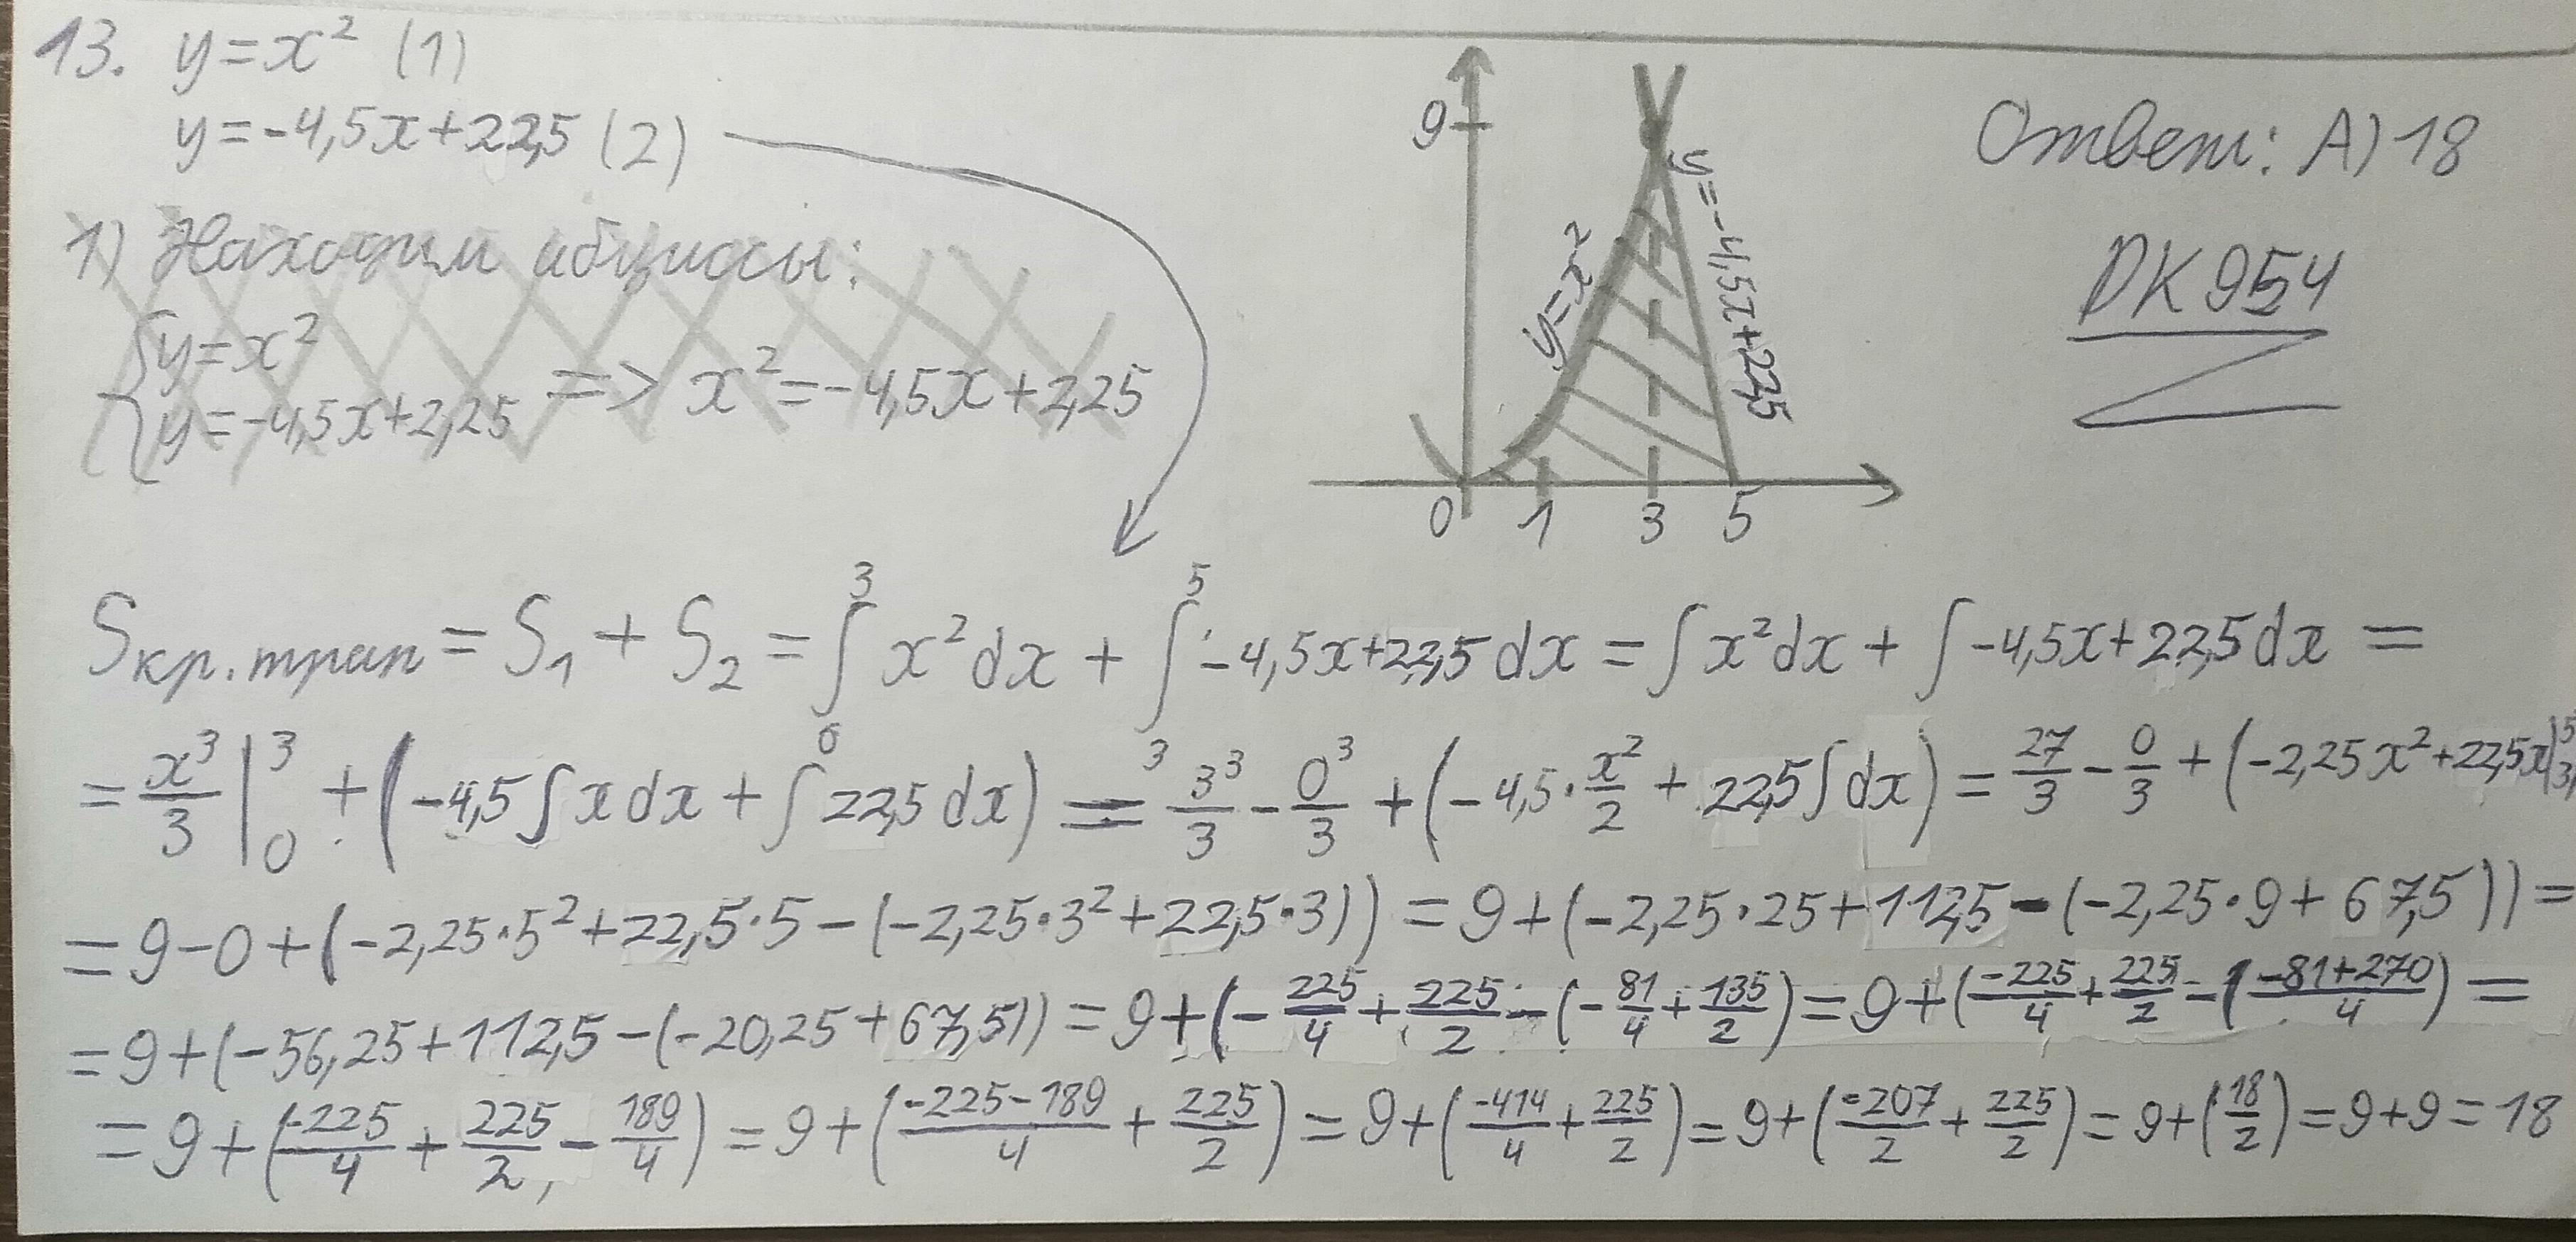 13. y=x² (1)
y=-4,5x+22,5 (2)
1) Находим абциссы:
{y=x²
{y=-4,5x+2,25 => x²=-4,5x+2,25
9
y=x²
y=-4,5x+22,5
0 1 3 5
Ответ: А) 18
DK954
Sкр.трап = S₁ + S₂ = ∫₀³ x²dx + ∫₃⁵ -4,5x+22,5dx = ∫x²dx + ∫-4,5x+22,5dx =
= x³/3 |₀³ + (-4,5∫xdx + ∫22,5dx) = 3³/3 - 0³/3 + (-4,5·x²/2 + 22,5∫dx) = 27/3 - 0/3 + (-2,25x²+22,5x|₃⁵)
= 9-0+(-2,25·5²+22,5·5-(-2,25·3²+22,5·3)) = 9+(-2,25·25+112,5-(-2,25·9+67,5)) =
= 9+(-56,25+112,5-(-20,25+67,5)) = 9+(-225/4+225/2-(-81/4+135/2) = 9+(-225/4+225/2-(-81+270/4) =
= 9+(-225/4+225/2-189/4) = 9+(-225-189/4+225/2) = 9+(-414/4+225/2) = 9+(-207/2+225/2) = 9+(18/2) = 9+9 = 18